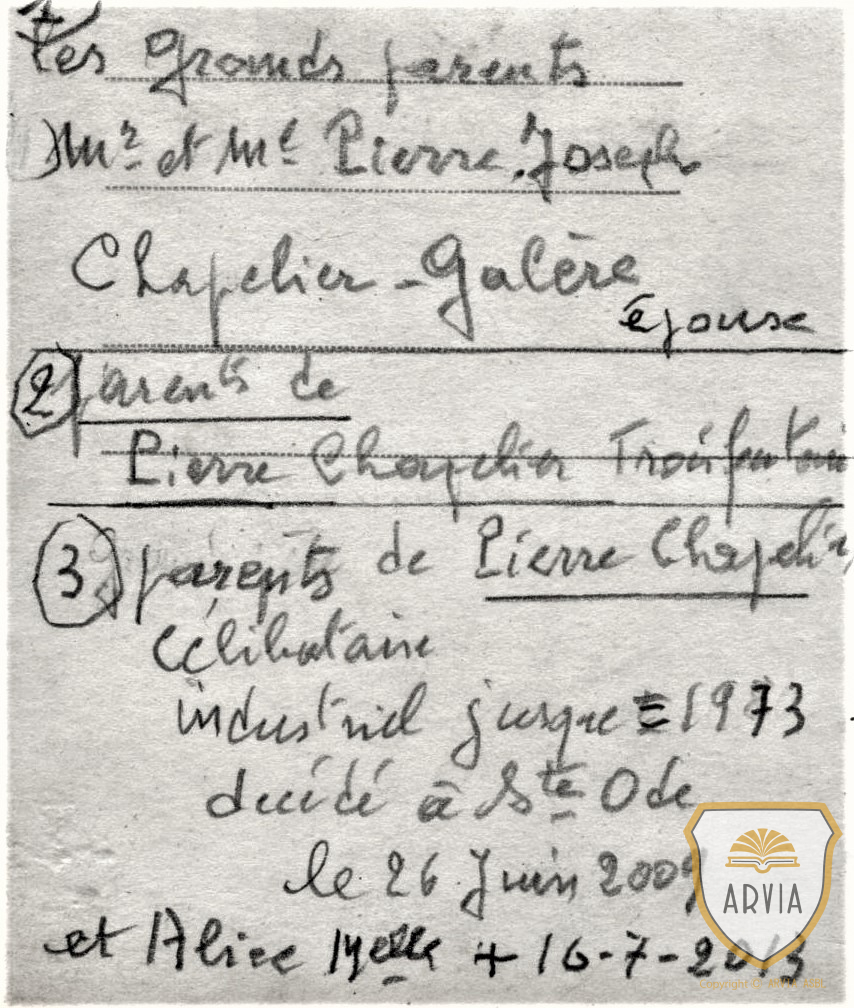 Les Grands parents
Mr et Me Pierre.Joseph
Chapelier - Galère
épouse
2 parents de
Pierre Chapelier Troisfontain
3 parents de Pierre Chapelier
célibataire
industriel jusque = 1973
decédé à Ste Ode
le 26 Juin 2009
et Alice + 16-7-2013
ARVIA
Copyright © ARVIA